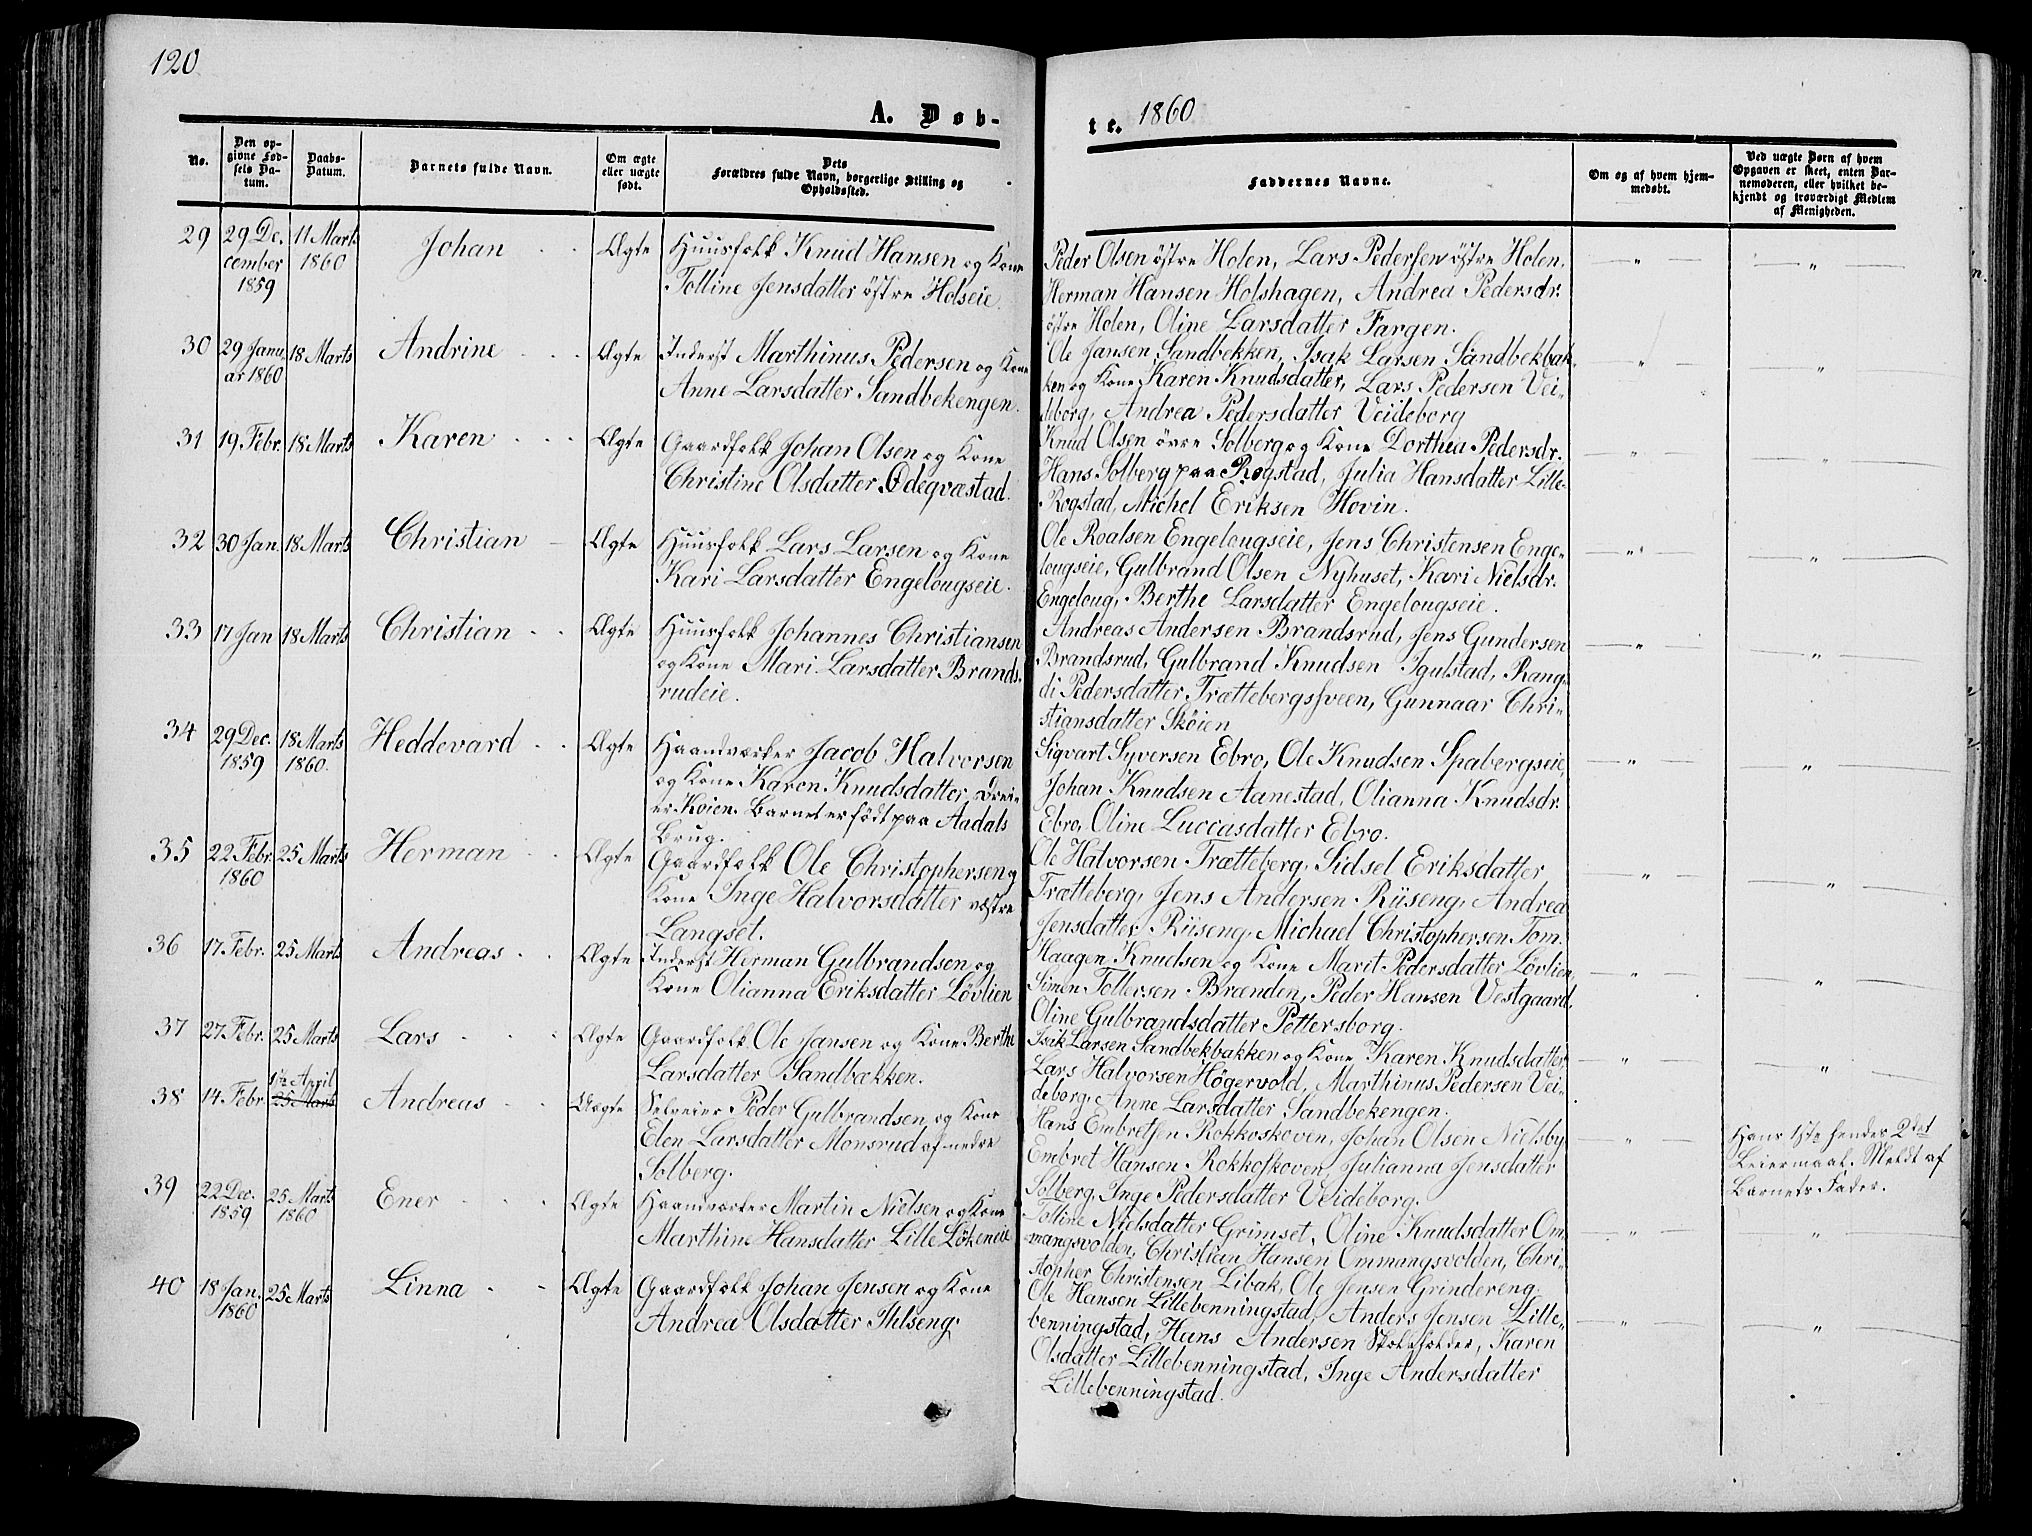 120
A. Døb-
te. 1860
No.
Den op-
givne Fød-
sels Da-
tum.
Daabs-
Datum.
Barnets fulde Navn.
Om ægte
eller uægte
født.
Dets
Forældres fulde Navn, borgerlige Stilling og
Opholdssted.
Faddernes Navne.
Om og af hvem hjem-
medøbt.
Ved uægte Børn af hvem
Opgaven er skeet, enten Bar-
nemoderen, eller hvilket be-
kjendt og troværdigt Medlem
af Menigheden.
29
29 De-
cember
1859
11 Marts
1860
Johan
Ægte
Huusfolk Knud Hansen og Kone
Tolline Jensdatter østre Holseie.
Peder Olsen østre Holen, Lars Pedersen østre Holen.
Herman Hansen Holshagen, Andrea Pedersdr.
østre Holen, Oline Larsdatter Fargen.
30
29 Janu-
ar 1860
18 Marts
Andrine
Ægte
Inderst Marthinus Pedersen og Kone
Anne Larsdatter Sandbekengen.
Ole Jansen Sandbekken, Isak Larsen Sandbekbak-
ken og Kone Karen Knudsdatter, Lars Pedersen Vei-
deborg, Andrea Pedersdatter Veideborg
31
19 Febr.
18 Marts
Karen
Ægte
Gaardfolk Johan Olsen og Kone
Christine Olsdatter Ødeqvæstad.
Knud Olsen øvre Solberg og Kone Dorthea Pedersdr.
Hans Solberg paa Rogstad, Julia Hansdatter Lille-
Rogstad, Michel Eriksen Hovin.
32
30 Jan.
18 Marts
Christian
Ægte
Huusfolk Lars Larsen og Kone
Kari Larsdatter Engelougseie.
Ole Roalsen Engelougseie, Jens Christensen Enge-
lougseie, Gulbrand Olsen Nyhuset, Kari Nielsdr.
Engeloug, Berthe Larsdatter Engelougseie.
33
17 Jan
18 Marts
Christian
Ægte
Huusfolk Johannes Christiansen
og Kone Mari Larsdatter Brands-
rudeie.
Andreas Andersen Brandsrud, Jens Gundersen
Brandsrud, Gulbrand Knudsen Igulstad, Rang-
di Pedersdatter Trættebergssveen, Gunnaar Chri-
stiansdatter Skøien
34
29 Dec.
1859
18 Marts
1860.
Heddevard
Ægte
Haandværker Jacob Halvorsen
og Kone Karen Knudsdatter,
Køien. Barnet er født paa Aadals
Brug.
Sigvart Syversen Ebro, Ole Knudsen Spabergseie,
Johan Knudsen Aanestad, Olianna Knudsdr.
Ebro, Oline Luccasdatter Ebro.
35
22 Febr.
1860
25 Marts
Herman
Ægte
Gaardfolk Ole Christophersen og
Kone Inge Halvorsdatter vestre
Langset.
Ole Halvorsen Trætteberg, Sidsel Eriksdatter
Trætteberg, Jens Andersen Riiseng, Andrea
Jensdatter Riiseng, Michael Christophersen Tom.
36
17 Febr.
25 Marts
Andreas
Ægte
Inderst Herman Gulbrandsen og
Kone Olianna Eriksdatter Løvlien
Haagen Knudsen og Kone Marit Pedersdatter Løvlien,
Simen Tollersen Brænden, Peder Hansen Vestgaard,
Oline Gulbrandsdatter Pettersborg.
37
27 Febr.
25 Marts
Lars
Ægte
Gaardfolk Ole Jansen og Kone Berthe
Larsdatter Sandbækken.
Isak Larsen Sandbekbakken og Kone Karen Knudsdatter,
Lars Halvorsen Høgervold, Marthinus Pedersen Vei-
deborg, Anne Larsdatter Sandbekengen.
38
14 Febr.
1ste April
25 Marts
Andreas
Uægte
Selveier Peder Gulbrandsen og Kone
Elen Larsdatter Monsrud af nedre
Solberg.
Hans Embretsen Rokkoskoven, Johan Olsen Nielsby,
Embret Hansen Rokkoskoven, Julianna Jensdatter
Solberg, Inge Pedersdatter Veideborg.
Hans 1ste hendes 2det
Leiermaal. Meldt af
Barnets Fader.
39
22 Dec.
1859
25 Marts
1860
Ener
Ægte
Haandværker Martin Nielsen og Kone
Marthine Hansdatter Lille Løkeneie
Tolline Nielsdatter Grimset, Oline Knudsdatter Om-
mangsvolden, Christian Hansen Ommangsvolden, Chri-
stopher Christensen Libak, Ole Jensen Grindereng.
40
18 Jan.
1860
25 Marts
Linna
Ægte
Gaardfolk Johan Jensen og Kone
Andrea Olsdatter Ihlseng.
Ole Hansen Lillebenningstad, Anders Jensen Lille-
benningstad, Hans Andersen Skoleholder, Karen
Olsdatter Lillebenningstad, Inge Andersdatter
Lillebenningstad.